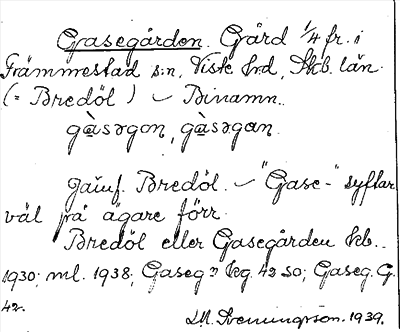 Gasegården. Gård 1/4 fr. i
Främmestad s:n, Viste hd, Skb. län.
(= Bredöl) – Binamn.
gàsəgon, gàsəgan.
Jämf. Bredöl. – "Gase-" syftar
väl på ägare förr.
Bredöl eller Gasegården kb.
1930; ml. 1938; Gaseg:n kg. 42 SO; Gaseg. G.
42.
1939.